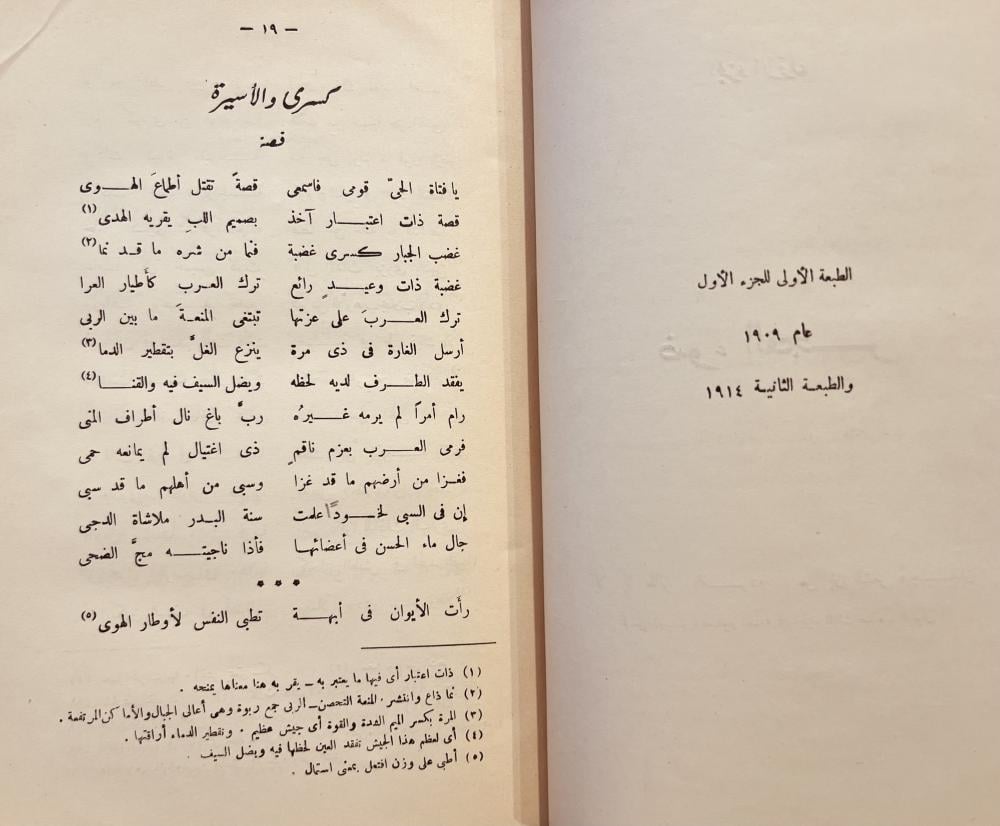 الطبعة الأولى للجزء الأول
عام ١٩٠٩
والطبعـة الثانيـة ١٩١٤
— ١٩ —
كسرى والأسيرة
قصة
يا فتاة الحىّ قومى فاسمعى قصةً تقتل أطماعَ الهوى
قصة ذات اعتبار آخذ بصميم اللبِ يقريه الهدى (١)
غضب الجبار كسرى غضبة فنما من شره ما قد نما (٢)
غضبة ذات وعيدٍ رائع ترك العرب كأَطيار العرا
ترك العربَ على عزتها تبتغى المنعةَ ما بين الربى
أرسل الغارة فى ذى مرة ينزع الغلَّ بتقطير الدما (٣)
يفقد الطرف لديه لحظه ويضل السيف فيه والقنا (٤)
رام أمراً لم يرمه غيرُه ربَّ باغ نال أطراف المنى
فرمى العرب بعزم ناقمٍ ذى اغتيال لم يمانعه حمى
فغزا من أرضهم ما قد غزا وسبى من أهلهم ما قد سبى
إن فى السبى لخوداً علمت سنة البدر ملاشاة الدجى
جال ماء الحسن فى أعضائها فأذا ناجيته مجَّ الضحى
* * *
رأَت الأيوان فى أبهة تطبى النفس لأوطار الهوى (٥)
(١) ذات اعتبار أى فيها ما يعتبر به — يقر به هنا معناها يمنحه .
(٢) نما ذاع وانتشر . المنعة التحصن — الربى جمع ربوة وهى أعالى الجبال والأماكن المرتفعة .
(٣) المرة بكسر الميم الشدة والقوة أى جيش عظيم . وتقطير الدماء أراقتها .
(٤) أى لعظم هذا الجيش تفقد العين لحظها فيه ويضل السيف .
(٥) أطبى على وزن افتعل بمعنى استمال .